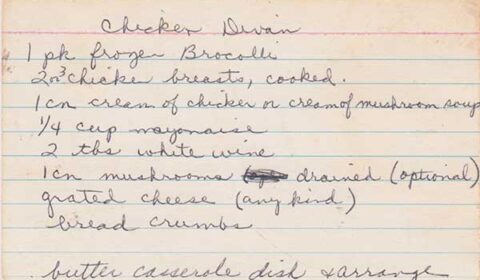 Chicken Divan
1 pk frozen Brocolli
2 or 3 chicke breasts, cooked.
1 cn cream of chicken or cream of mushroom soup
1/4 cup mayonaise
2 tbs white wine
1 cn mushrooms drained (optional)
grated cheese (any kind)
bread crumbs
butter casserole dish & arrange